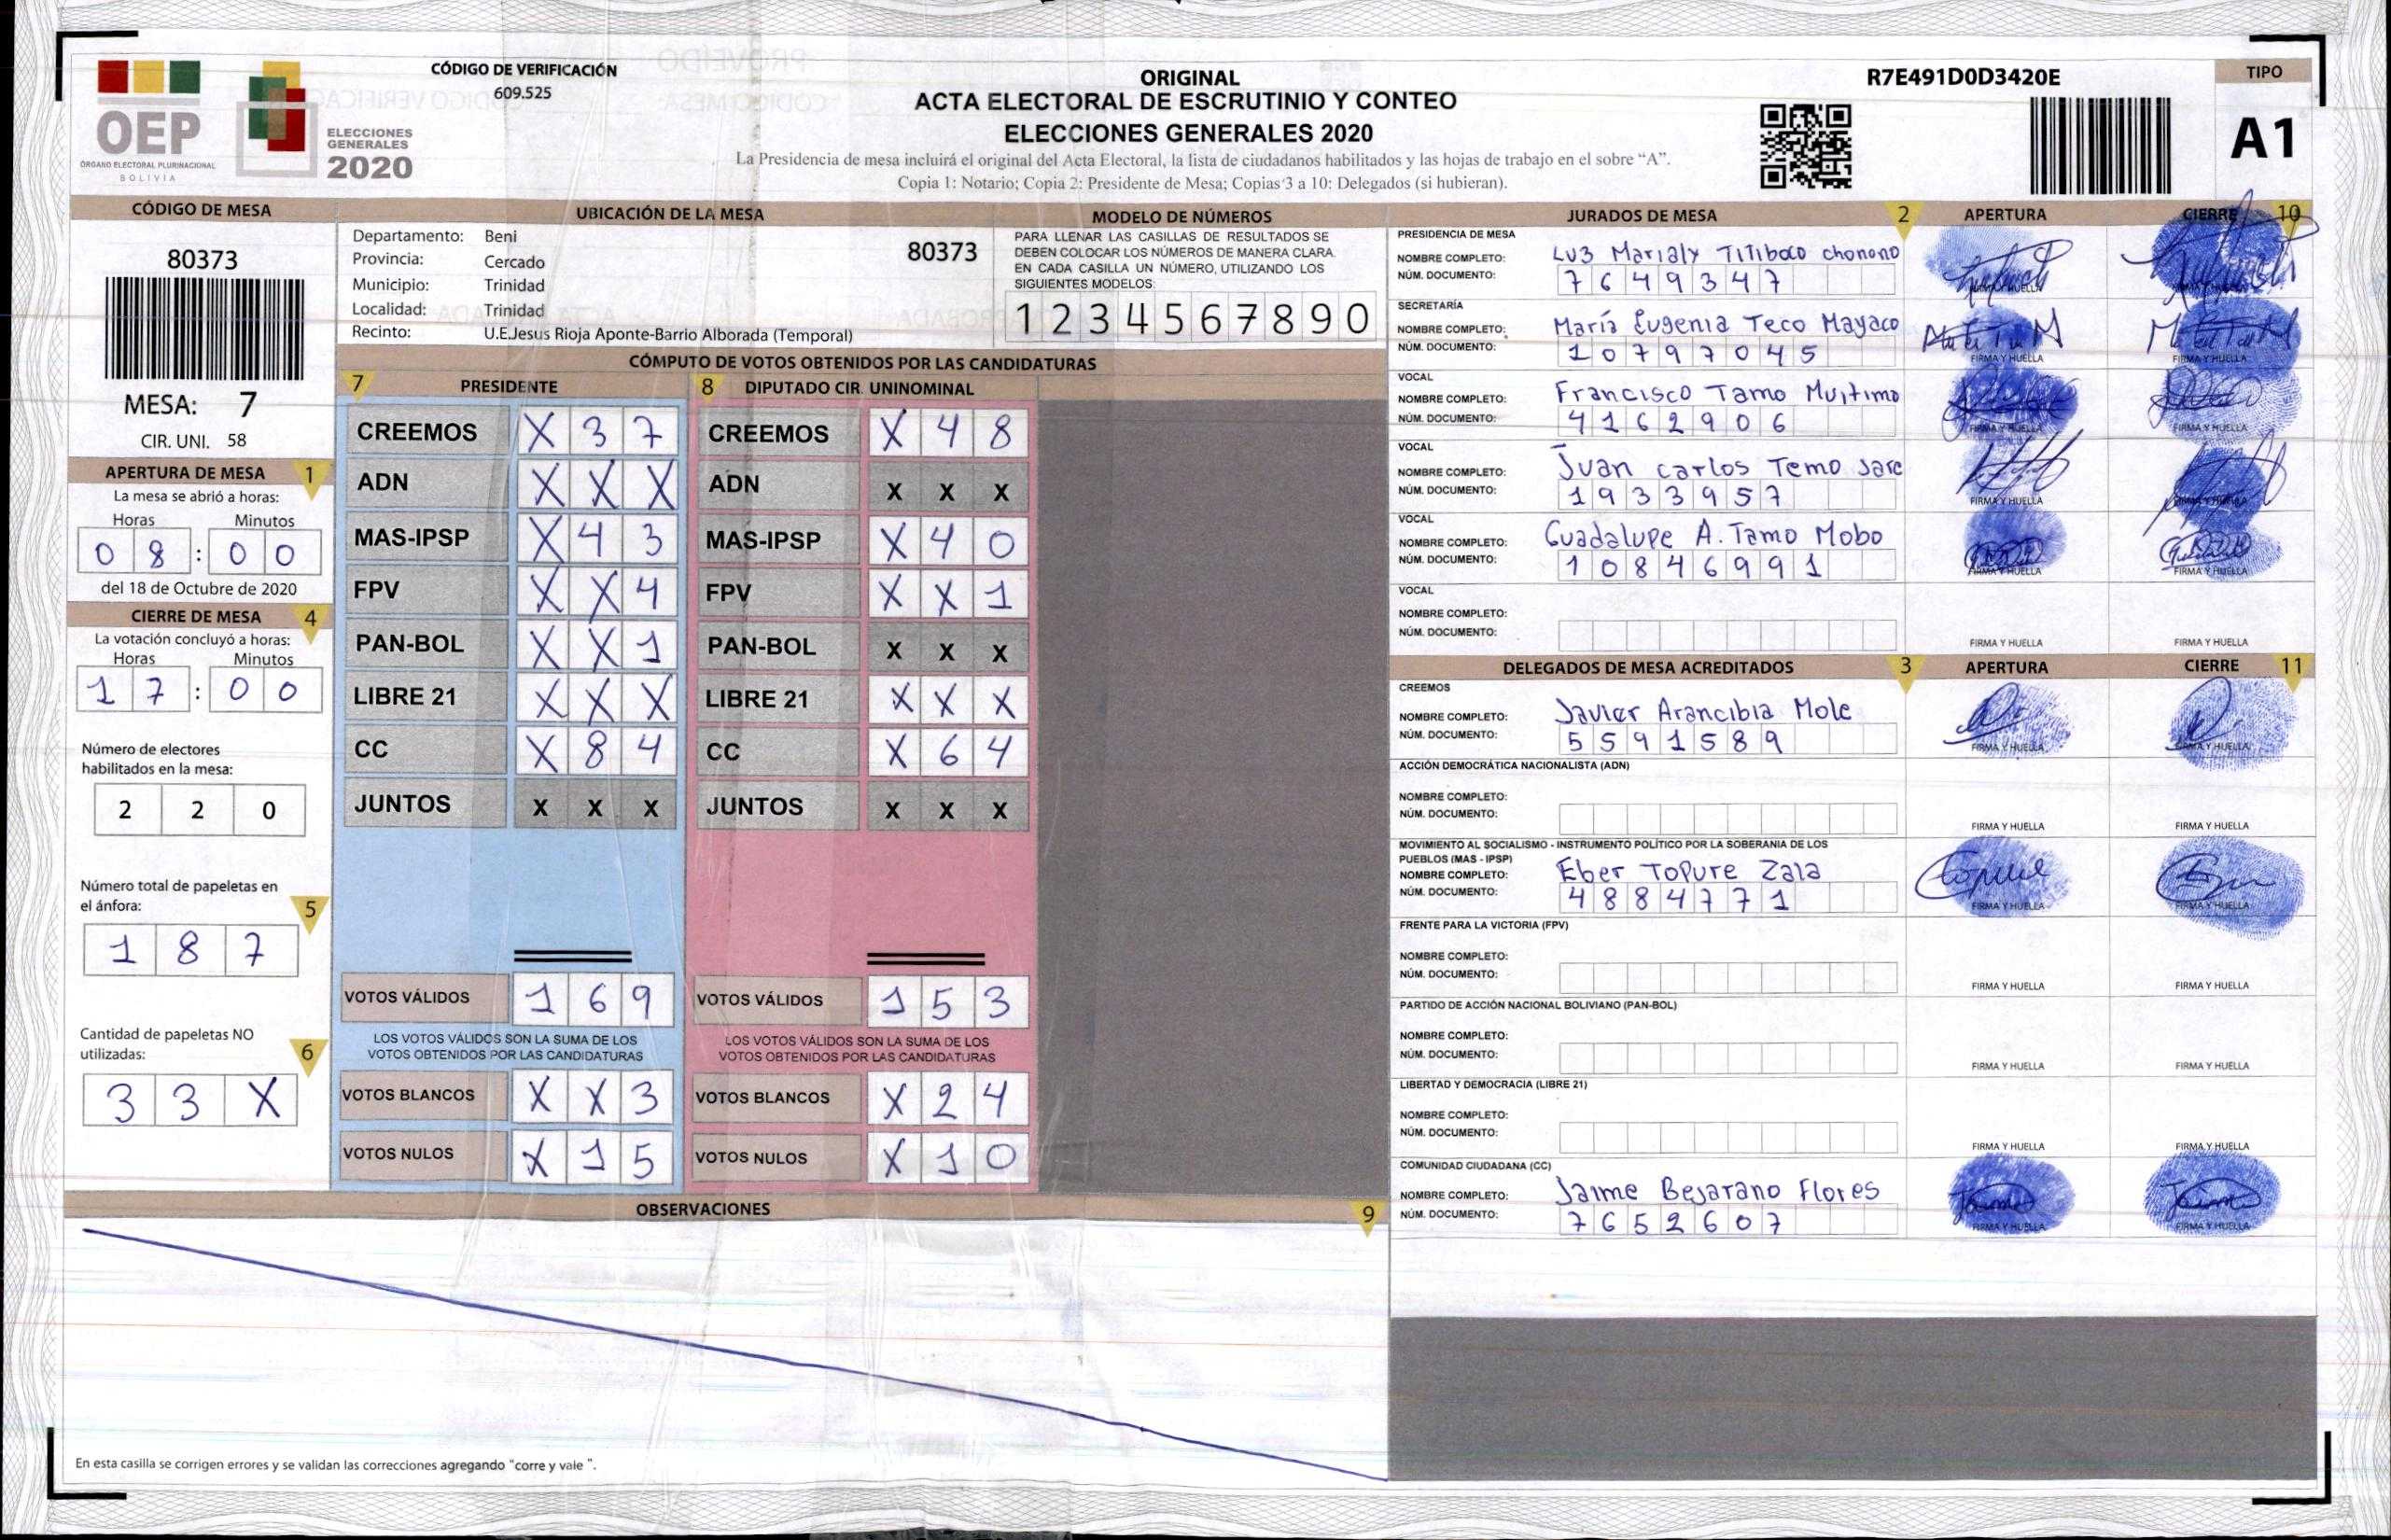 CÓDIGO DE VERIFICACIÓN
609.525
OEP
ÓRGANO ELECTORAL PLURINACIONAL
BOLIVIA
ELECCIONES
GENERALES
2020
ORIGINAL
ACTA ELECTORAL DE ESCRUTINIO Y CONTEO
ELECCIONES GENERALES 2020
La Presidencia de mesa incluirá el original del Acta Electoral, la lista de ciudadanos habilitados y las hojas de trabajo en el sobre "A".
Copia 1: Notario; Copia 2: Presidente de Mesa; Copias 3 a 10: Delegados (si hubieran).
R7E491D0D3420E
TIPO
A1
CÓDIGO DE MESA
80373
MESA: 7
CIR. UNI. 58
APERTURA DE MESA 1
La mesa se abrió a horas:
Horas Minutos
0 8 : 0 0
del 18 de Octubre de 2020
CIERRE DE MESA 4
La votación concluyó a horas:
Horas Minutos
1 7 : 0 0
Número de electores
habilitados en la mesa:
2 2 0
Número total de papeletas en
el ánfora: 5
1 8 7
Cantidad de papeletas NO
utilizadas: 6
3 3 X
UBICACIÓN DE LA MESA
Departamento: Beni
Provincia: Cercado
Municipio: Trinidad
Localidad: Trinidad
Recinto: U.E.Jesus Rioja Aponte-Barrio Alborada (Temporal)
80373
MODELO DE NÚMEROS
PARA LLENAR LAS CASILLAS DE RESULTADOS SE
DEBEN COLOCAR LOS NÚMEROS DE MANERA CLARA.
EN CADA CASILLA UN NÚMERO, UTILIZANDO LOS
SIGUIENTES MODELOS:
1 2 3 4 5 6 7 8 9 0
CÓMPUTO DE VOTOS OBTENIDOS POR LAS CANDIDATURAS
7 PRESIDENTE
CREEMOS X 3 7
ADN X X X
MAS-IPSP X 4 3
FPV X X 4
PAN-BOL X X 1
LIBRE 21 X X X
CC X 8 4
JUNTOS X X X
VOTOS VÁLIDOS 1 6 9
LOS VOTOS VÁLIDOS SON LA SUMA DE LOS
VOTOS OBTENIDOS POR LAS CANDIDATURAS
VOTOS BLANCOS X X 3
VOTOS NULOS X 1 5
8 DIPUTADO CIR. UNINOMINAL
CREEMOS X 4 8
ADN X X X
MAS-IPSP X 4 0
FPV X X 1
PAN-BOL X X X
LIBRE 21 X X X
CC X 6 4
JUNTOS X X X
VOTOS VÁLIDOS 1 5 3
LOS VOTOS VÁLIDOS SON LA SUMA DE LOS
VOTOS OBTENIDOS POR LAS CANDIDATURAS
VOTOS BLANCOS X 2 4
VOTOS NULOS X 1 0
OBSERVACIONES 9
En esta casilla se corrigen errores y se validan las correcciones agregando "corre y vale ".
JURADOS DE MESA 2 APERTURA CIERRE 10
PRESIDENCIA DE MESA
NOMBRE COMPLETO: Luz Marialy Titiboco chonono
NÚM. DOCUMENTO: 7 6 4 9 3 4 7
FIRMA Y HUELLA
SECRETARÍA
NOMBRE COMPLETO: María Eugenia Teco Mayaco
NÚM. DOCUMENTO: 1 0 7 9 7 0 4 5
FIRMA Y HUELLA FIRMA Y HUELLA
VOCAL
NOMBRE COMPLETO: Francisco Tamo Muitimo
NÚM. DOCUMENTO: 4 1 6 2 9 0 6
FIRMA Y HUELLA FIRMA Y HUELLA
VOCAL
NOMBRE COMPLETO: Juan carlos Temo Jare
NÚM. DOCUMENTO: 1 9 3 3 9 5 7
FIRMA Y HUELLA FIRMA Y HUELLA
VOCAL
NOMBRE COMPLETO: Guadalupe A. Tamo Mobo
NÚM. DOCUMENTO: 1 0 8 4 6 9 9 1
FIRMA Y HUELLA FIRMA Y HUELLA
VOCAL
NOMBRE COMPLETO:
NÚM. DOCUMENTO:
FIRMA Y HUELLA FIRMA Y HUELLA
DELEGADOS DE MESA ACREDITADOS 3 APERTURA CIERRE 11
CREEMOS
NOMBRE COMPLETO: Javier Arancibia Mole
NÚM. DOCUMENTO: 5 5 9 1 5 8 9
FIRMA Y HUELLA FIRMA Y HUELLA
ACCIÓN DEMOCRÁTICA NACIONALISTA (ADN)
NOMBRE COMPLETO:
NÚM. DOCUMENTO:
FIRMA Y HUELLA FIRMA Y HUELLA
MOVIMIENTO AL SOCIALISMO - INSTRUMENTO POLÍTICO POR LA SOBERANIA DE LOS
PUEBLOS (MAS - IPSP)
NOMBRE COMPLETO: Eber Topure Zala
NÚM. DOCUMENTO: 4 8 8 4 7 7 1
FIRMA Y HUELLA FIRMA Y HUELLA
FRENTE PARA LA VICTORIA (FPV)
NOMBRE COMPLETO:
NÚM. DOCUMENTO:
FIRMA Y HUELLA FIRMA Y HUELLA
PARTIDO DE ACCIÓN NACIONAL BOLIVIANO (PAN-BOL)
NOMBRE COMPLETO:
NÚM. DOCUMENTO:
FIRMA Y HUELLA FIRMA Y HUELLA
LIBERTAD Y DEMOCRACIA (LIBRE 21)
NOMBRE COMPLETO:
NÚM. DOCUMENTO:
FIRMA Y HUELLA FIRMA Y HUELLA
COMUNIDAD CIUDADANA (CC)
NOMBRE COMPLETO: Jaime Bejarano Flores
NÚM. DOCUMENTO: 7 6 5 2 6 0 7
FIRMA Y HUELLA FIRMA Y HUELLA